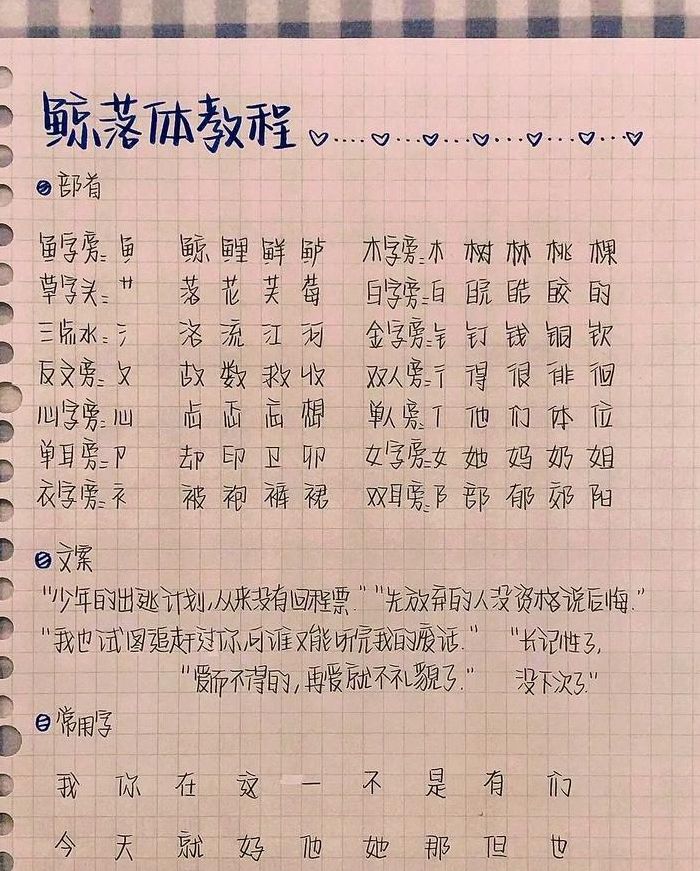 鲸落体教程
部首
鱼字旁: 鱼 鲸 鲤 鲜 鲈 木字旁: 木 树 林 桃 棵
草字头: 艹 落 花 芙 莓 白字旁: 白 皖 皓 皎 的
三点水: 氵 洛 流 江 河 金字旁: 钅 钉 钱 铜 钦
反文旁: 攵 故 数 救 收 双人旁: 彳 得 很 徘 徊
心字旁: 心 想 单人旁: 亻 他 们 体 位
单耳旁: 卩 却 印 卫 卯 女字旁: 女 她 妈 奶 姐
衣字旁: 衤 被 袍 裤 裙 双耳旁: 阝 部 郁 郊 阳
文案
"少年的出逃计划,从来没有回程票." "先放弃的人没资格说后悔."
"我也试图追赶过你,可谁又能听完我的废话." "长记性了,
"爱而不得的,再爱就不礼貌了." 没下次了."
常用字
我 你 在 这 一 不 是 有 们
今 天 就 好 他 她 那 但 也